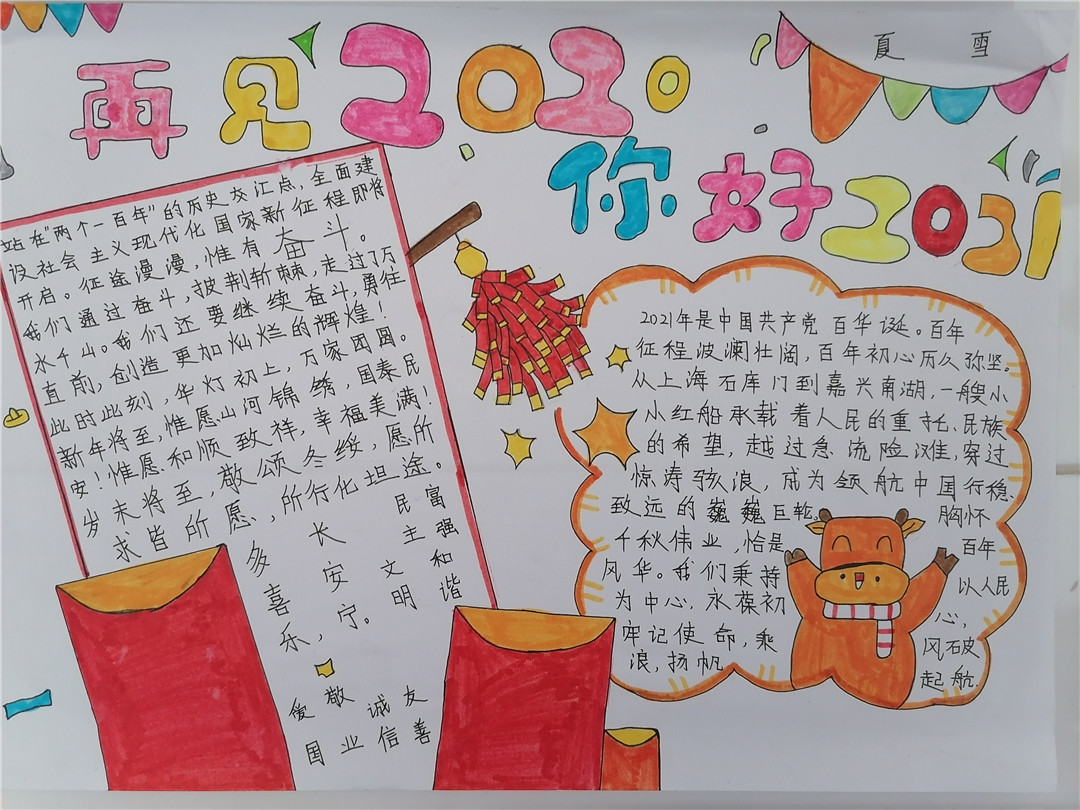 再见2020
夏 雪
你好2021
站在"两个一百年"的历史交汇点,全面建
设社会主义现代化国家新征程即将
开启。征途漫漫,惟有奋斗。
我们通过奋斗,披荆斩棘,走过了万
水千山。我们还要继续奋斗,勇往
直前,创造更加灿烂的辉煌!
此时此刻,华灯初上,万家团圆。
新年将至,惟愿山河锦绣,国泰民
安!惟愿和顺致祥,幸福美满!
岁末将至,敬颂冬绥,愿所
求皆所愿,所行化坦途。
多喜乐,
长安宁。
富强
民主
文明
和谐
爱国
敬业
诚信
友善
2021年是中国共产党百华诞。百年
征程波澜壮阔,百年初心历久弥坚。
从上海石库门到嘉兴南湖,一艘小
小红船承载着人民的重托、民族
的希望,越过急流险滩,穿过
惊涛骇浪,成为领航中国行稳、
致远的巍巍巨轮。胸怀
千秋伟业,恰是百年
风华。我们秉持以人民
为中心,永葆初心,
牢记使命,乘风破
浪,扬帆起航.